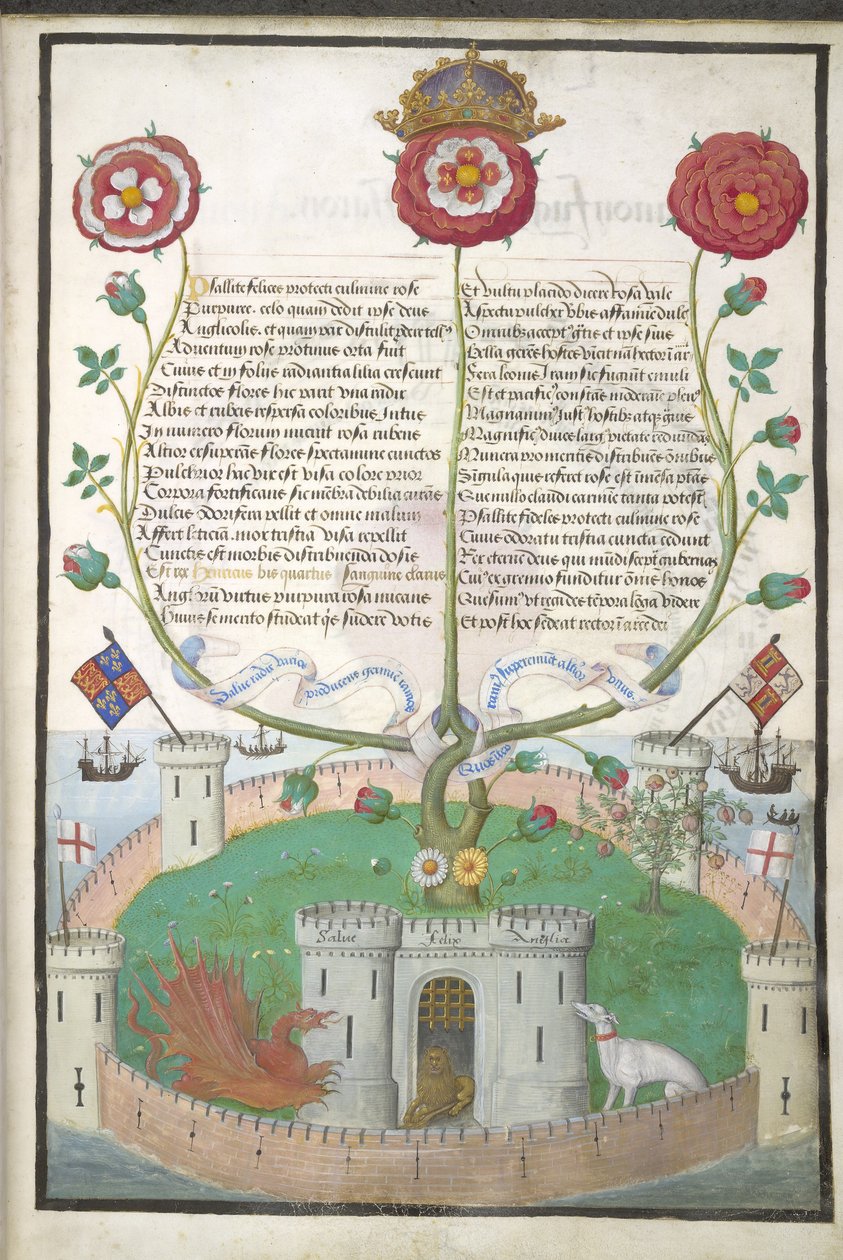 Psallite felices protecti culmine rose
Purpuree. celo quam dedit ipse deus
Anglicolis. et quam pair distulit
Aduentum rose protinus orta fuit
Cuius et in folijs radiantia lilia crescunt
Distinctos flores hic parit vna radix
Albis et rubeis respersa coloribus intus
In numero florum nitens rosa rubens
Altior exsuperans flores spectamine cunctos
Pulchrior hac vix est visa colore prior
Corpora fortificans sic membra debilia curans
Dulcis odorifera pellit et omne malum
Affert leticiam. mox tristia visa repellit
Cunctis est morbis distribuenda dosis
Est rex Henricus bis quartus sanguine clarus
Anglorum virtus purpura rosa micans
Huius memento studeat fundere votis
Et vultu placido dicere rosa vale
Aspectu pulcher verbis affamine dulcis
Omnibus accept9 et ipse suis
Bella gerens hostes vicit in armis
Fera leonis iram sic fugiunt emuli
Est et pacific9 constans moderamine plen9
Magnanim9 just9 hostibus atque
Magnific9 diues larg9 pietate redundans
Munera pro mentis distribuens omnibus
Singula quis referet rose est inmensa potestas
Que nullo claudi carmine tanta potest
Psallite fideles protecti culmine rose
Cuius odoratu tristia cuncta cedunt
Rex eterne deus qui mundi scept' gubernas
Cui9 ex gremio funditur omnis honos
Quesum9 vt regni des tempora longa videre
Et post hec sedeat rector in arce dei
Salue radix varios producens germine ramos
Quos inter ramus supereminet altior vnus
Salue felix Anglia